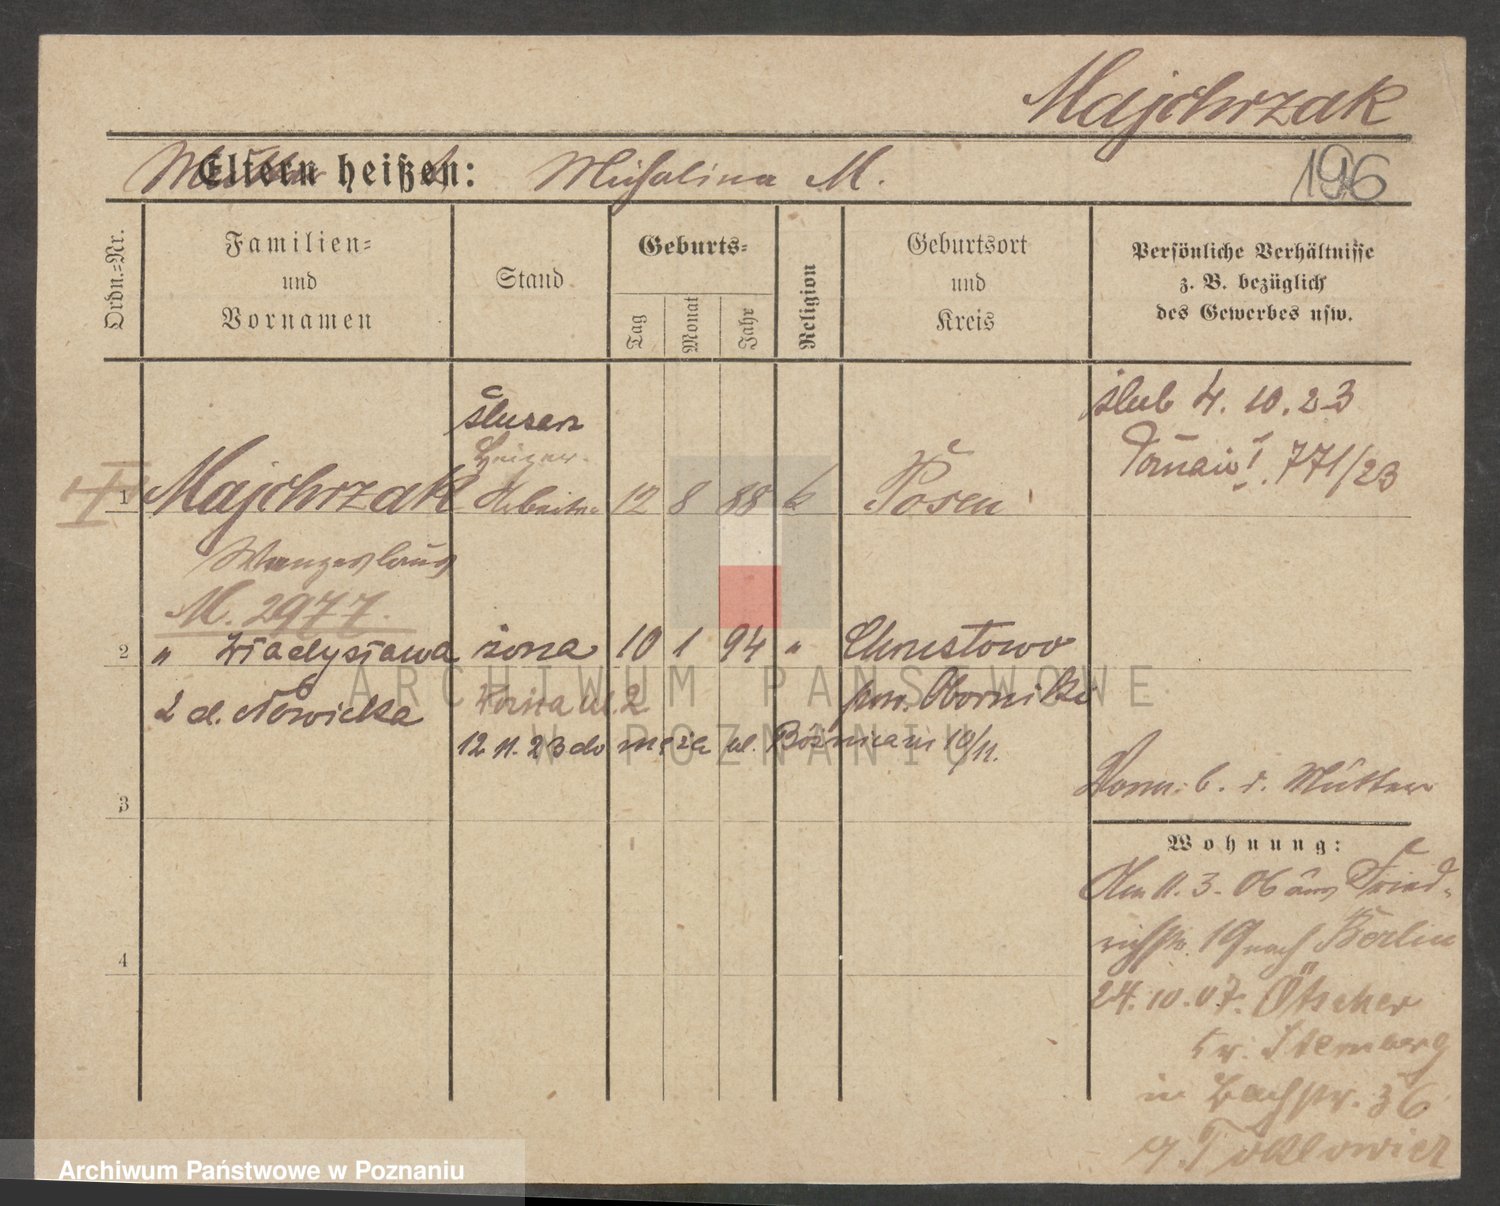 Majchrzak
196
Mutter Eltern heißen: Michalina M.
Ordn.-Nr.
Familien-
und
Vornamen
Stand
Geburts-
Tag
Monat
Jahr
Religion
Geburtsort
und
Kreis
Persönliche Verhältnisse
z. B. bezüglich
des Gewerbes usw.
ślub 4. 10. 23
Poznań I. 771/23
ślusarz
Heizer
1 Majchrzak Arbeiter 12 8 88 k Posen
Wenzeslaus
M. 2977.
2 " Władysława żona 10 1 94 " Chrustowo
z d. Nowicka 2. pow. Oborniki
12 11. 23 do męża ul. Bóżnicza 10/11.
3
Vorm. b. d. Mutter
Wohnung:
Am 11. 3. 06 aus Fried-
richstr. 19 nach Berlin
24. 10. 07. Ötscher
Kr. Sternberg
in Bachstr. 36
4
ARCHIWUM PAŃSTWOWE
W POZNANIU
Archiwum Państwowe w Poznaniu